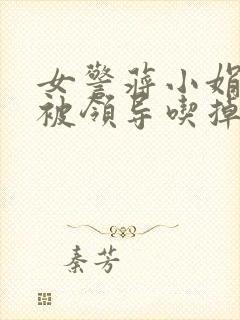 女警蒋小娟
被领导喫掉
秦芳